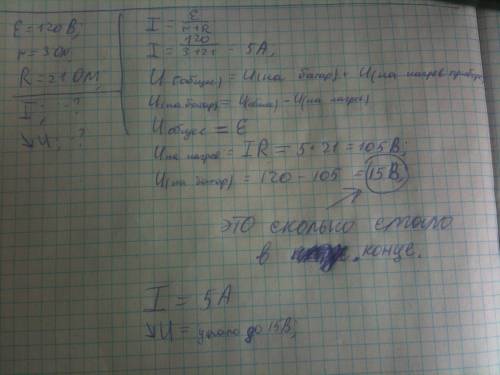 Ɛ = 120 В;
r = 3 Ом
R = 21 Ом,
I; - ?
↓U; - ?
I = Ɛ / r+R
I = 120 / 3+21 = 5А,
U(общее) = U(на батар) + U(на нагрев прибор)
U(на батар) = U(общ) - U(на нагрев)
U общее = Ɛ
U на нагрев = IR = 5*21 = 105В;
U(на батар) = 120 - 105 = 15В,
это сколько стало
в конце.
I = 5А
↓U = упало до 15В;